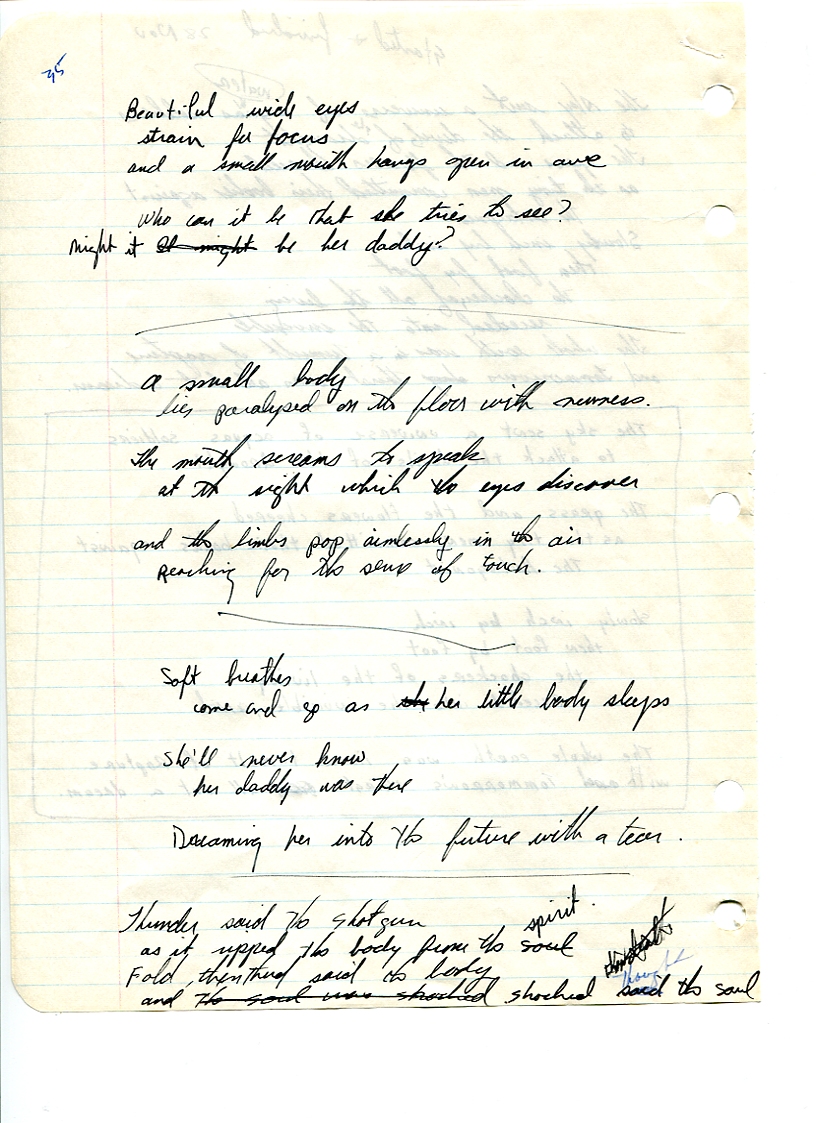 35
Beautiful wide eyes
strain for focus
and a small mouth hangs open in awe
Who can it be that she tries to see?
Might it It might be her daddy?
A small body
lies paralysed on the floor with newness.
The mouth screams to speak
at the sight which the eyes discover
and the limbs pop aimlessly in the air
Reaching for the sense of touch.
Soft breathes
come and go as she her little body sleeps
She'll never know
her daddy was there
Dreaming her into the future with a tear.
Thunder said the shotgun
spirit.
as it ripped the body from the soul
Fold, then thud said the body
thought
and The soul was shocked shocked said the soul